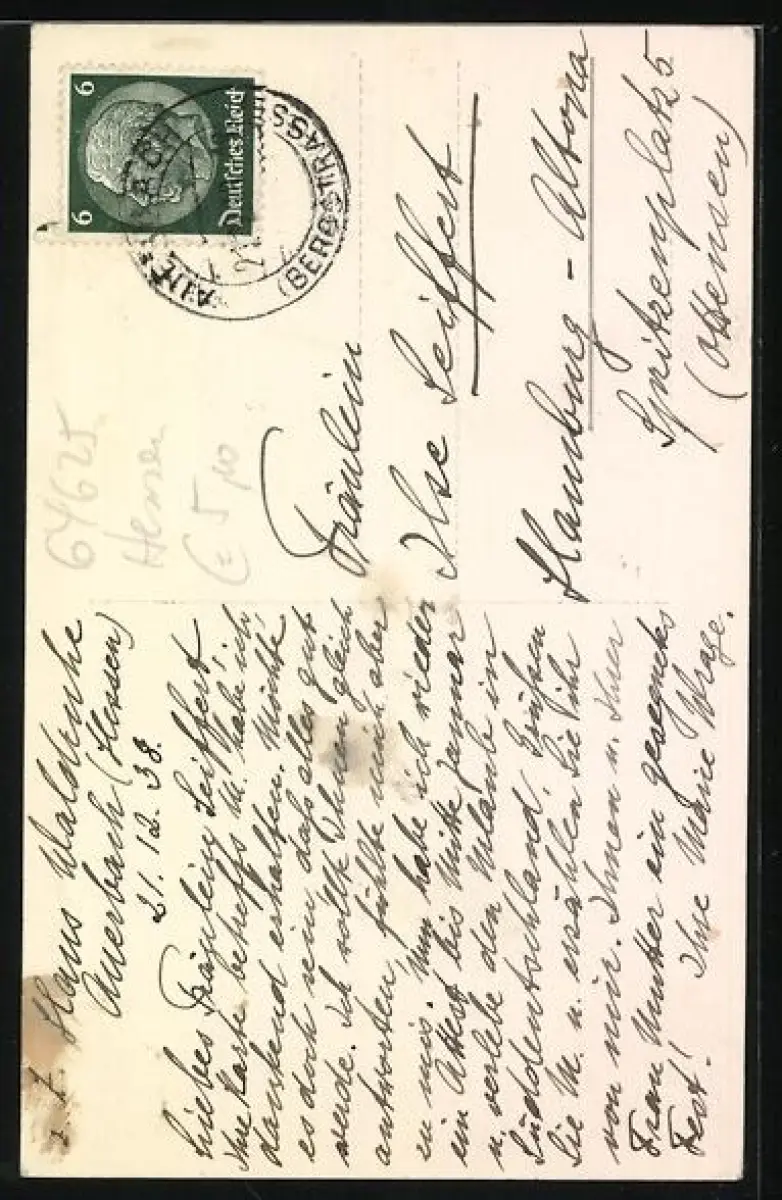 z. Z. Haus Waldruhe
Auerbach (Hessen)
21.12.38.
Liebes Fräulein Seiffert,
Ihre Karte betreffs M. habe ich
dankend erhalten. Möchte
es doch sein, daß alles gut
werde. Ich wollte Ihnen gleich
antworten, fühlte mich aber
zu mis. Nun habe ich wieder
ein Attest bis Mitte Januar
u. verlebe den Urlaub in
Süddeutschland. Grüßen
Sie M. u. erzählen Sie ihr
von mir. Ihnen u. Ihrer
Frau Mutter ein gesegnetes
Fest! Ihre Marie Wrage.
6
6
Deutsches Reich
AUERBACH
(BERGSTRASS
64625
Hensen
Fräulein
Ilse Seiffert
Hamburg - Altona
Spritzenplatz 5
(Ottensen)